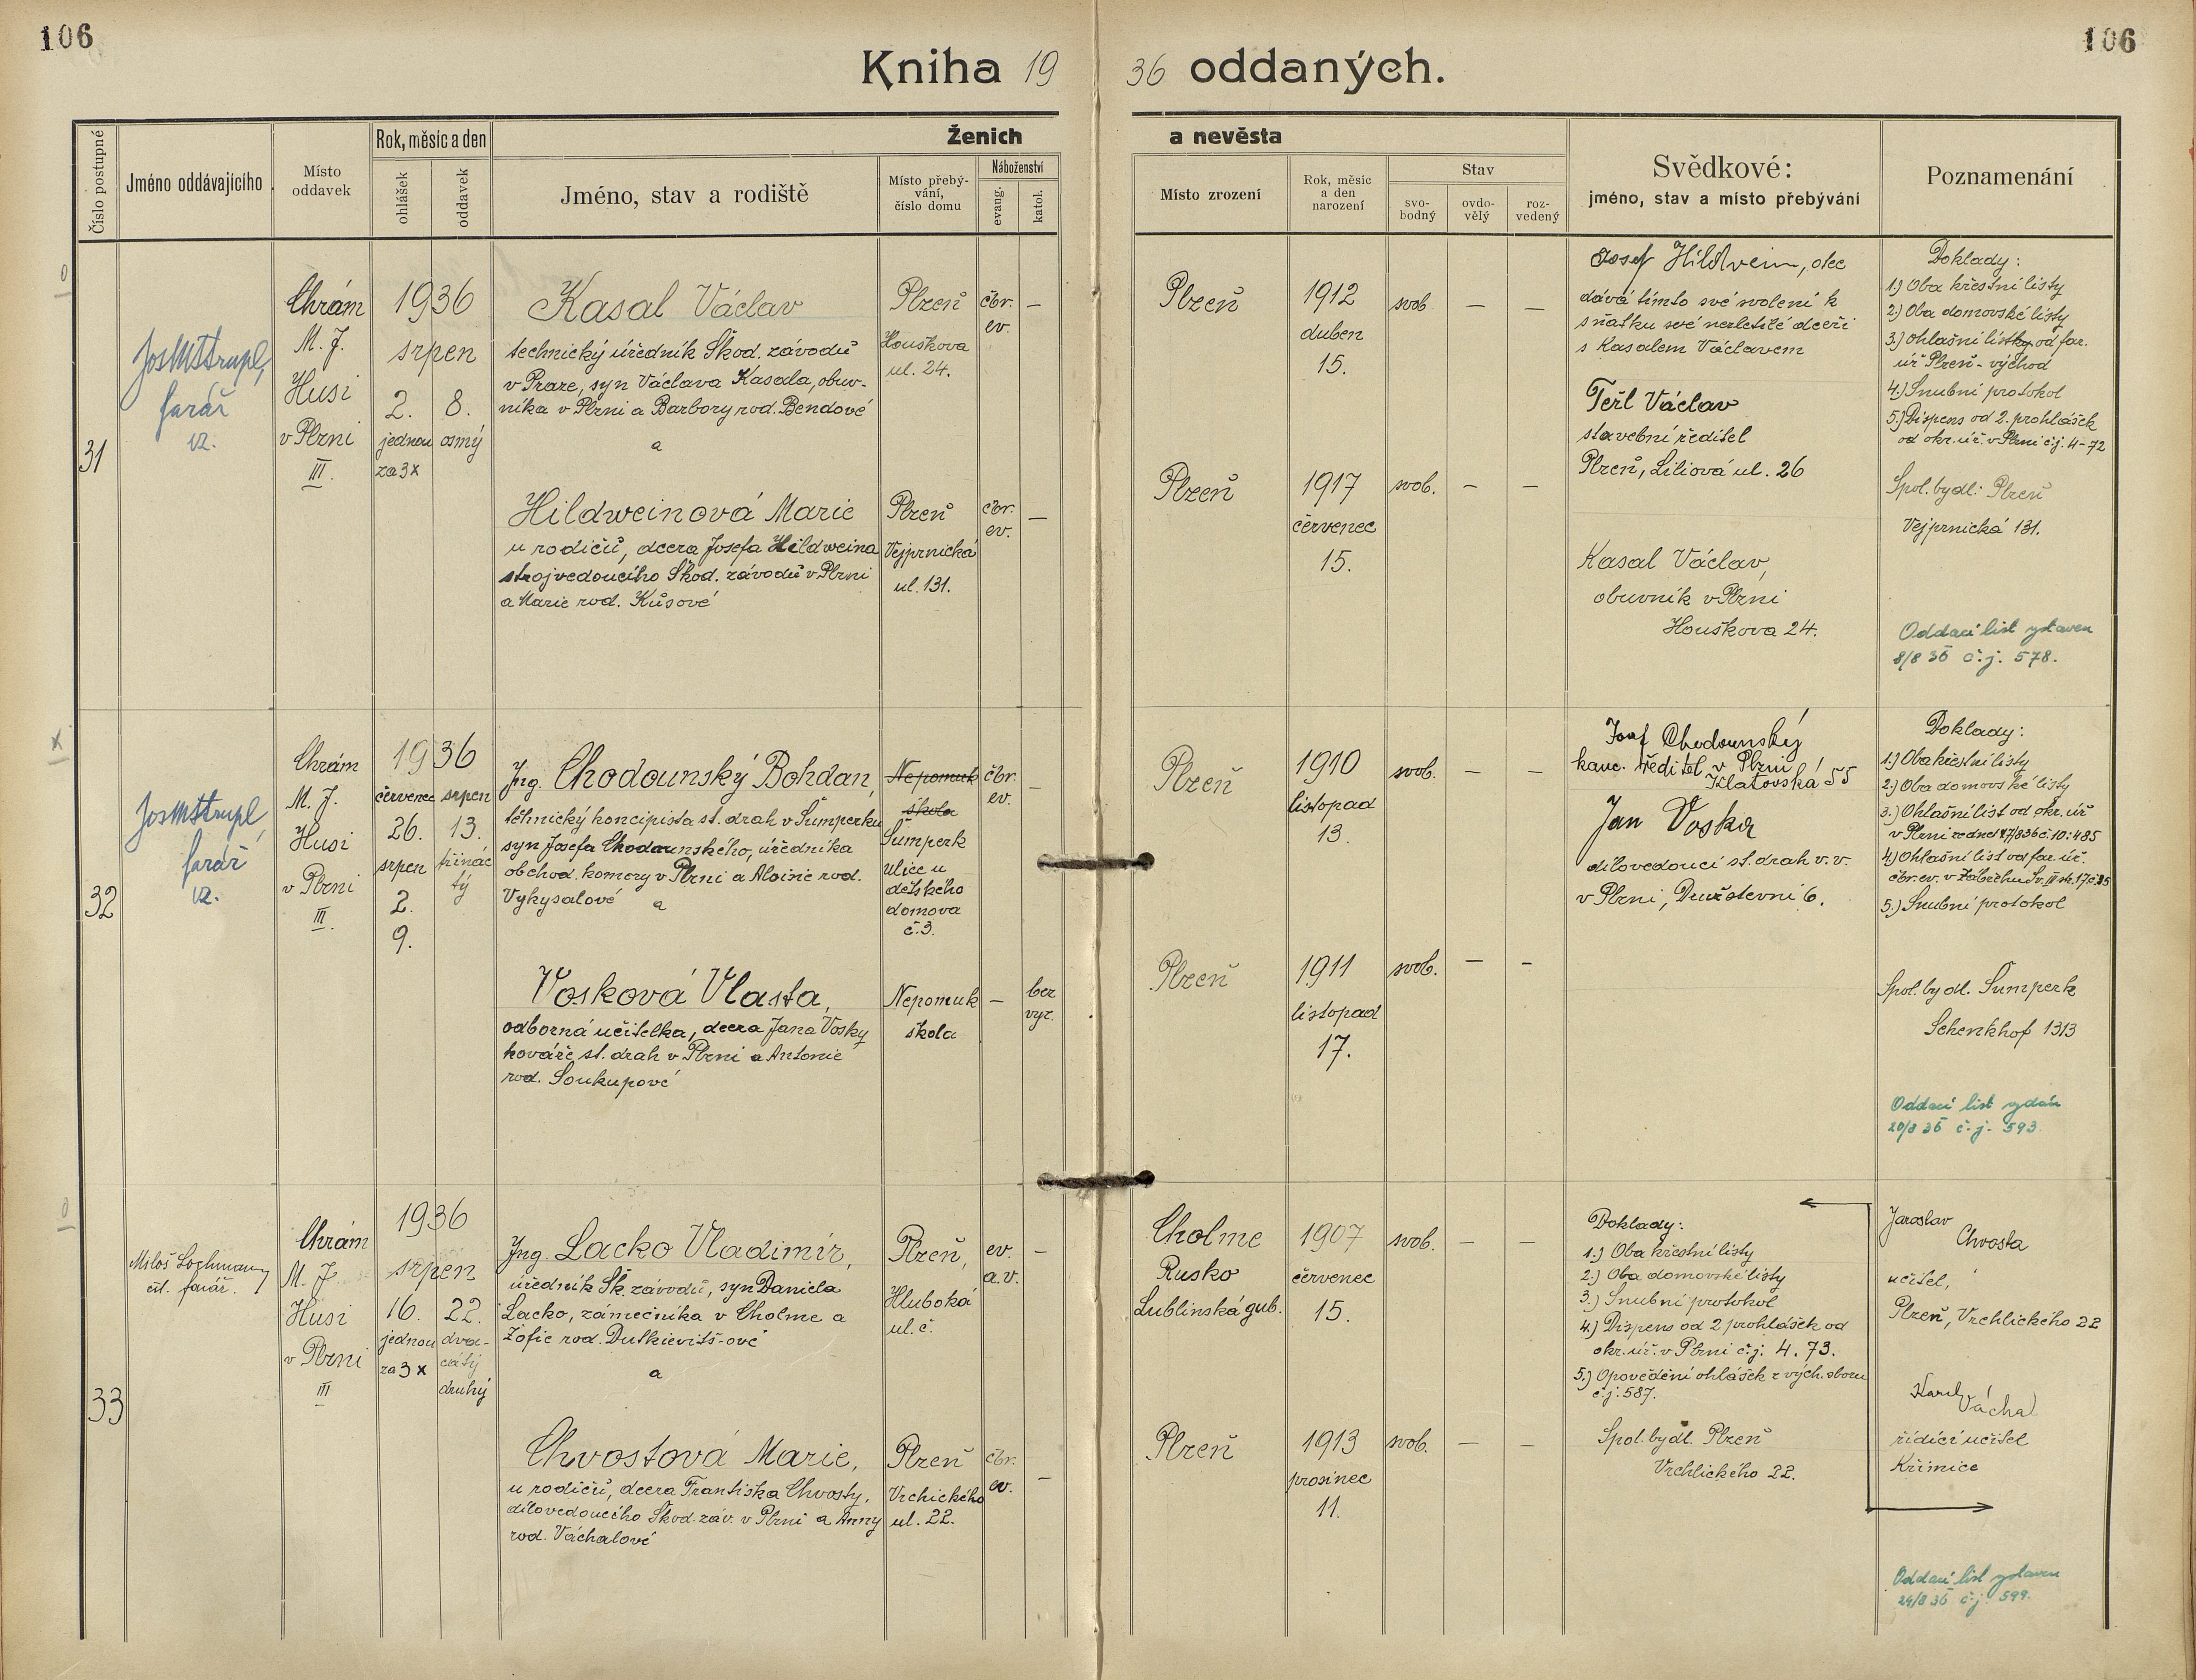 106
106
Kniha 19 36 oddaných.
Číslo postupné
Jméno oddávajícího
Místo oddavek
Rok, měsíc a den
ohlášek
oddavek
Ženich a nevěsta
Jméno, stav a rodiště
Místo přebý-
vání,
číslo domu
Náboženství
evang.
katol.
Místo zrození
Rok, měsíc
a den
narození
Stav
svo-
bodný
ovdo-
vělý
roz-
vedený
Svědkové:
jméno, stav a místo přebývání
Poznamenání
31
farář
vz.
Chrám
M. J.
Husi
v Plzni
III.
1936
srpen
2. 8.
jednou osmý
za 3x
Kasal Václav
technický úředník Škod. závodů
v Praze, syn Václava Kasala, obuv-
níka v Plzni a Barbory rod. Bendové
a
Plzeň
Houškova
ul. 24.
čbr.
ev.
—
Hildweinová Marie
u rodičů, dcera Josefa Hildweina
strojvedoucího Škod. závodů v Plzni
a Marie rod. Kůsové
Plzeň
Vejprnická
ul. 131.
čbr.
ev.
—
Plzeň
1912
duben
15.
svob. — —
Plzeň
1917
červenec
15.
svob. — —
Josef Hildwein, otec
dává tímto své svolení k
sňatku své nezletilé dceři
s Kasalem Václavem
Teřl Václav
stavební ředitel
Plzeň, Liliová ul. 26
Kasal Václav,
obuvník v Plzni
Houškova 24.
Doklady:
1.) Oba křestní listy
2.) Oba domovské listy
3.) ohlašní listky od far.
úř Plzeň - východ
4.) Snubní protokol
5.) Dispens od 2. prohlášek
od okr. úř. v Plzni č.j. 4-72
Spol. bydl.: Plzeň
Vejprnická 131.
Oddací list vystaven
8/8 36 č.j. 578.
32
farář
vz.
Chrám
M. J.
Husi
v Plzni
III.
1936
červenec srpen
26. 13.
srpen třinác
tý
2.
9.
Ing. Chodounský Bohdan,
těhnický koncipista st. drah v Šumperku
syn Josefa Chodounského, úředníka
obchod. komory v Plzni a Aloisie rod.
Vykysalové a
Nepomuk
škola
Šumperk
ulice u
dětského
domova
č. 3.
čbr.
ev.
—
Vosková Vlasta,
odborná učitelka, dcera Jana Vosky
kováře st. drah v Plzni a Antonie
rod. Soukupové
Nepomuk
škola
—
bez
vyz.
Plzeň
1910
listopad
13.
svob. — —
Plzeň
1911
listopad
17.
svob. — —
Josef Chodounský
kanc. ředitel v Plzni
Klatovská 55
Jan Voska
dílovedoucí st. drah v. v.
v Plzni, Družstevní 6.
Doklady:
1.) Oba křestní listy
2.) Oba domovské listy
3.) Ohlašní list od okr. úř
4.) Ohlašní list od far. úř.
5.) Snubní protokol
Spol. bydl. Šumperk
Schenkhof 1313
Oddací list vydán
20/8 36 č.j. 593.
33
Miloš Lochman
farář.
Chrám
M. J.
Husi
v Plzni
III
1936
srpen
16. 22.
jednou dva-
za 3 x cátý
druhý
Ing. Lacko Vladimír,
úředník Šk. závodů, syn Daniela
Lacko, zámečníka v Cholme a
Žofie rod. Dutkievitš-ové
a
Plzeň,
Hluboká
ul. č.
ev.
a. v.
—
Chvostová Marie,
u rodičů, dcera Františka Chvosty,
dílovedoucího Škod. záv. v Plzni a Anny
rod. Váchalové
Plzeň
Vrchického
ul. 22.
čbr.
ev.
—
Cholme
Rusko
Lublinská gub.
1907
červenec
15.
svob. — —
Plzeň
1913
prosinec
11.
svob. — —
Doklady:
1.) Oba křestní listy
2.) Oba domovské listy
3.) Snubní protokol
4.) Dispens od 2 prohlášek od
okr. úř. v Plzni č.j. 4. 73.
5.) Opovědění ohlášek z vých. sboru
č.j. 587.
Spol. bydl. Plzeň
Vrchlického 22.
Jaroslav
Chvosta
učitel,
Plzeň, Vrchlického 22
Karel
Váchal
řídící učitel
Křimice
Oddací list vystaven
24/8 36 č.j. 599.